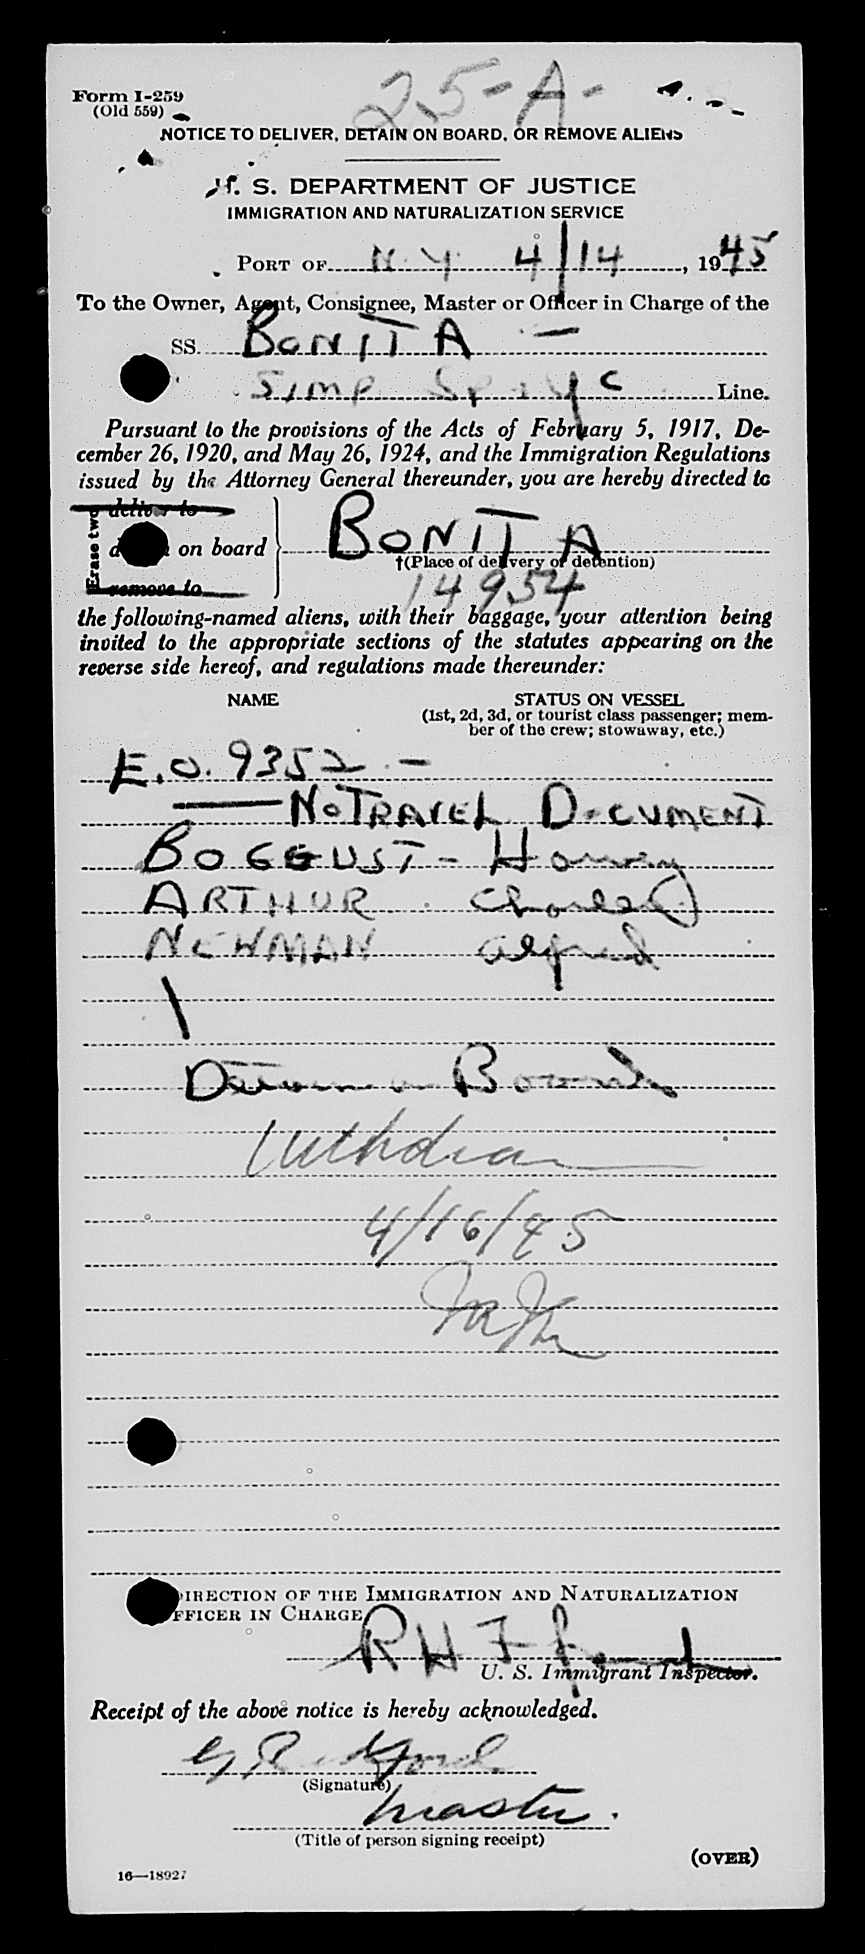 25-A-
Form I-259
(Old 559)
NOTICE TO DELIVER, DETAIN ON BOARD, OR REMOVE ALIENS
U. S. DEPARTMENT OF JUSTICE
IMMIGRATION AND NATURALIZATION SERVICE
PORT OF N.Y. 4/14, 1945
To the Owner, Agent, Consignee, Master or Officer in Charge of the
SS. BONITA -
Simp Line.
Pursuant to the provisions of the Acts of February 5, 1917, De-
cember 26, 1920, and May 26, 1924, and the Immigration Regulations
issued by the Attorney General thereunder, you are hereby directed to
Erase two
deliver to
on board
remove to
BONITA
†(Place of delivery or detention)
14954
the following-named aliens, with their baggage, your attention being
invited to the appropriate sections of the statutes appearing on the
reverse side hereof, and regulations made thereunder:
NAME STATUS ON VESSEL
(1st, 2d, 3d, or tourist class passenger; mem-
ber of the crew; stowaway, etc.)
E.O. 9352 -
NO TRAVEL DOCUMENT
BOGGUST - Harvey
ARTHUR Charles
NEWMAN Alfred
Detain on Board
Withdrawn
4/16/45
DIRECTION OF THE IMMIGRATION AND NATURALIZATION
OFFICER IN CHARGE
R H F
U. S. Immigrant Inspector.
Receipt of the above notice is hereby acknowledged.
(Signature)
Master.
(Title of person signing receipt)
(OVER)
16—18927